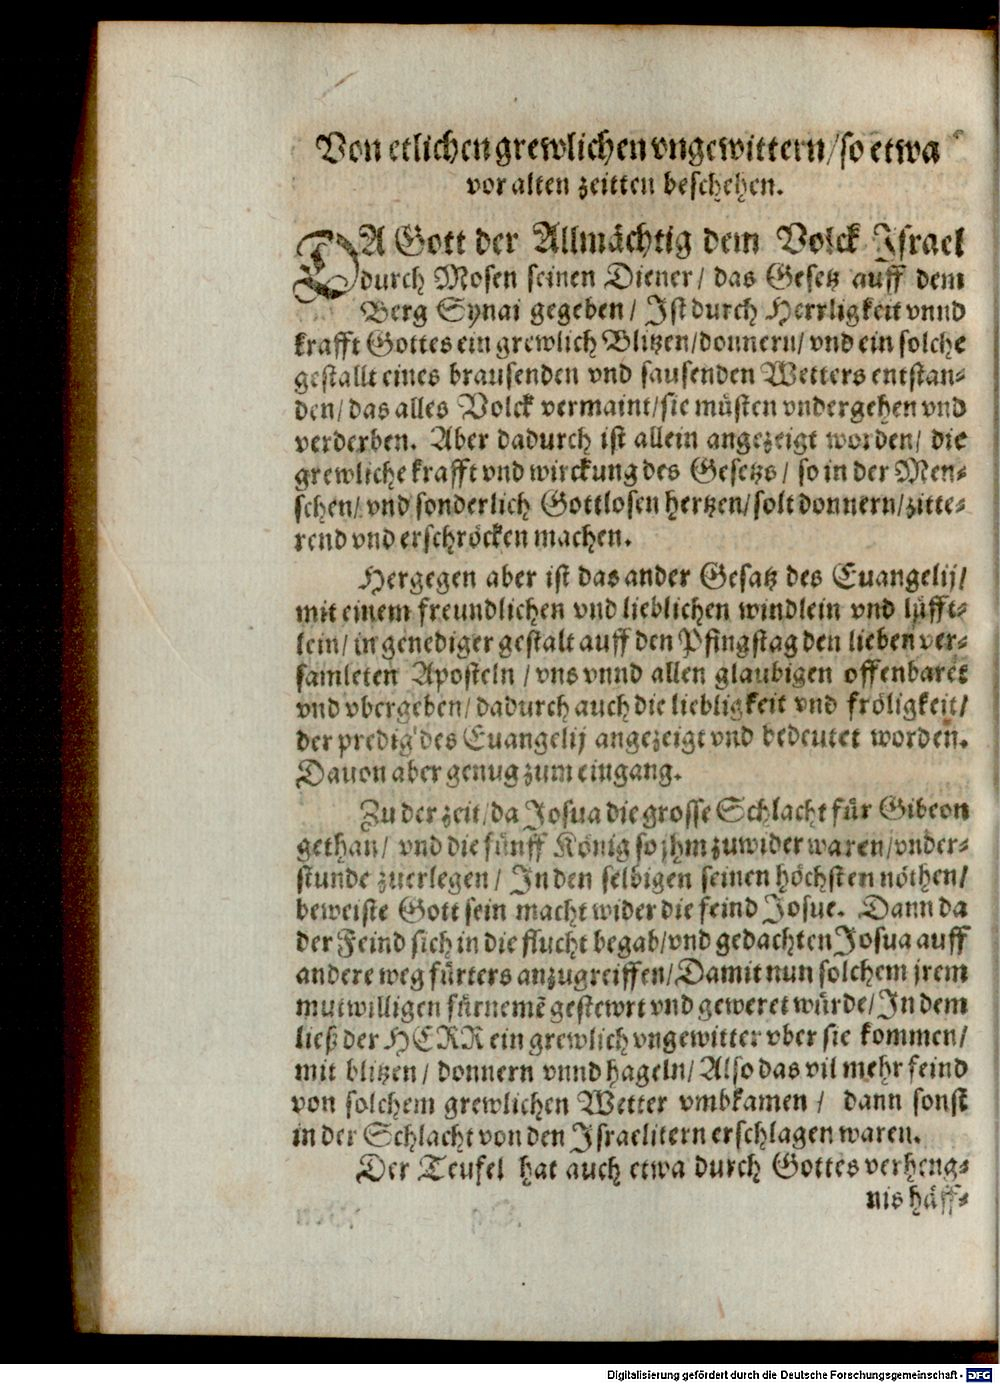 Von etlichen grewlichen vngewittern/ so etwa
vor alten zeitten beschehen.
DA Gott der Allmächtig dem Volck Israel
durch Mosen seinen Diener/ das Gesetz auff dem
Berg Synai gegeben/ Ist durch Herrligkeit vnnd
krafft Gottes ein grewlich Blitzen/ donnern/ vnd ein solche
gestallt eines brausenden vnd sausenden Wetters entstan-
den/ das alles Volck vermaint/ sie müsten vndergehen vnd
verderben. Aber dadurch ist allein angezeigt worden/ die
grewliche krafft vnd wirckung des Gesetzs/ so in der Men-
schen/ vnd sonderlich Gottlosen hertzen/ solt donnern/ zitte-
rend vnd erschröcken machen.
Hergegen aber ist das ander Gesatz des Euangelij/
mit einem freundlichen vnd lieblichen windlein vnd lüfft-
lein/ in genediger gestalt auff den Pfingstag den lieben ver-
samleten Aposteln/ vns vnnd allen glaubigen offenbaret
vnd vbergeben/ dadurch auch die liebligkeit vnd fröligkeit/
der predig des Euangelij angezeigt vnd bedeutet worden.
Dauon aber genug zum eingang.
Zu der zeit/ da Josua die grosse Schlacht für Gibeon
gethan/ vnd die fünff König so jhm zuwider waren/ vnder-
stunde zuerlegen/ In den selbigen seinen höchsten nöthen/
beweiste Gott sein macht wider die feind Josue. Dann da
der Feind sich in die flucht begab/ vnd gedachten Josua auff
andere weg fürters anzugreiffen/ Damit nun solchem jrem
mutwilligen fürnemẽ gestewrt vnd geweret würde/ In dem
ließ der HERR ein grewlich vngewitter vber sie kommen/
mit blitzen/ donnern vnnd hageln/ Also das vil mehr feind
von solchem grewlichen Wetter vmbkamen/ dann sonst
in der Schlacht von den Israelitern erschlagen waren.
Der Teufel hat auch etwa durch Gottes verheng-
nis häff-
Digitalisierung gefördert durch die Deutsche Forschungsgemeinschaft - DFG